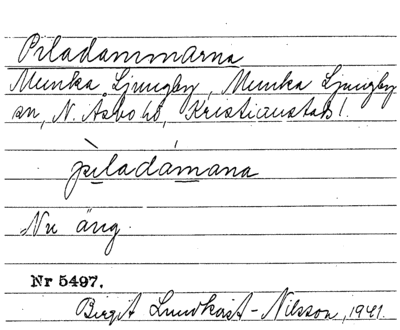 Piladammarna
Munka Ljungby, Munka Ljungby
sn, N. Åsbo hd, Kristianstads l.
pìladámana
Nu äng.
Nr 5497.
Birgit Lundkvist-Nilsson, 1941.